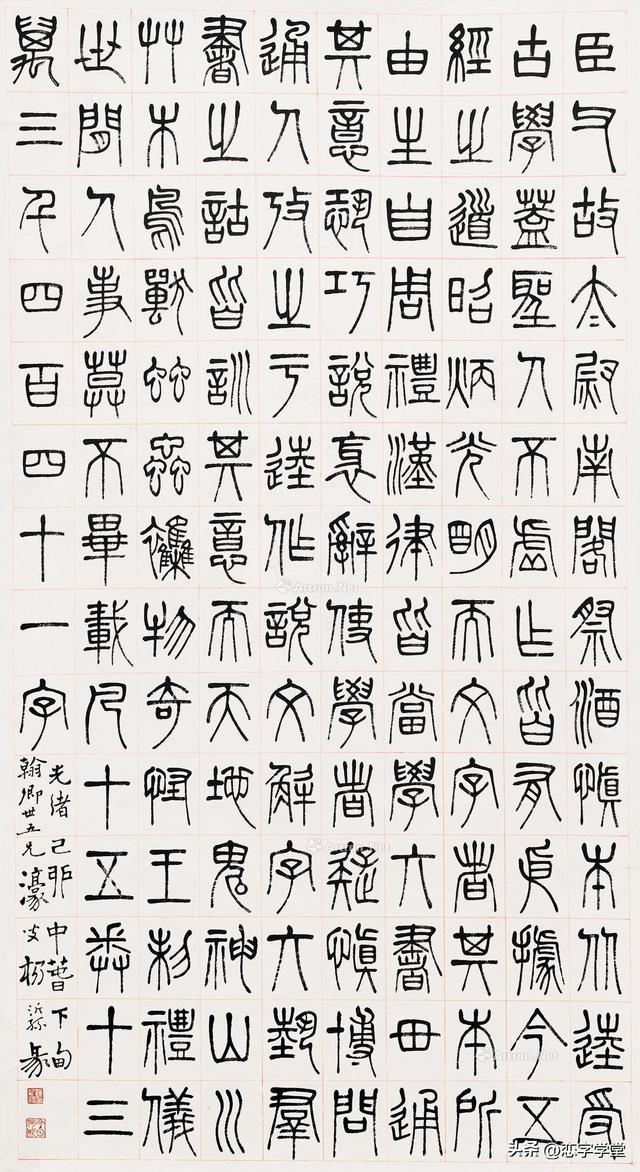 臣父故太尉南閣祭酒慎本从逵受
古學蓋聖人不虛作皆有依據今五
經之道昭炳光明而文字者其本所
由生自周禮漢律皆當學六書毌通
其意恐巧說邪辭使學者疑慎博問
通人攷之于逵作說文解字六藝羣
書之詁皆訓其意而天地鬼神山川
艸木鳥獸䖵蟲襍物奇怪王制禮儀
世間人事莫不畢載凡十五卷十三
萬三千四百四十一字
光緒己卯中春下旬
翰卿世五兄 濠叟楊沂孫篆
Artron.Net
Artron.Net
Artron.Net
头条 @恋字学堂